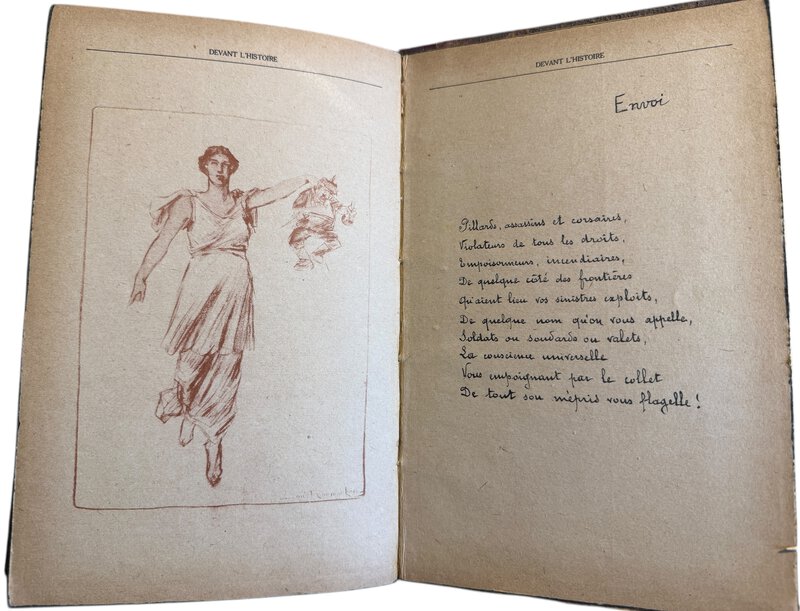 DEVANT L'HISTOIRE
DEVANT L'HISTOIRE
Envoi
Pillards, assassins et corsaires,
Violateurs de tous les droits,
Empoisonneurs, incendiaires,
De quelque côté des frontières
Qu'aient lieu vos sinistres exploits,
De quelque nom qu'on vous appelle,
Soldats ou soudards ou valets,
La conscience universelle
Vous empoignant par le collet
De tout son mépris vous flagelle !